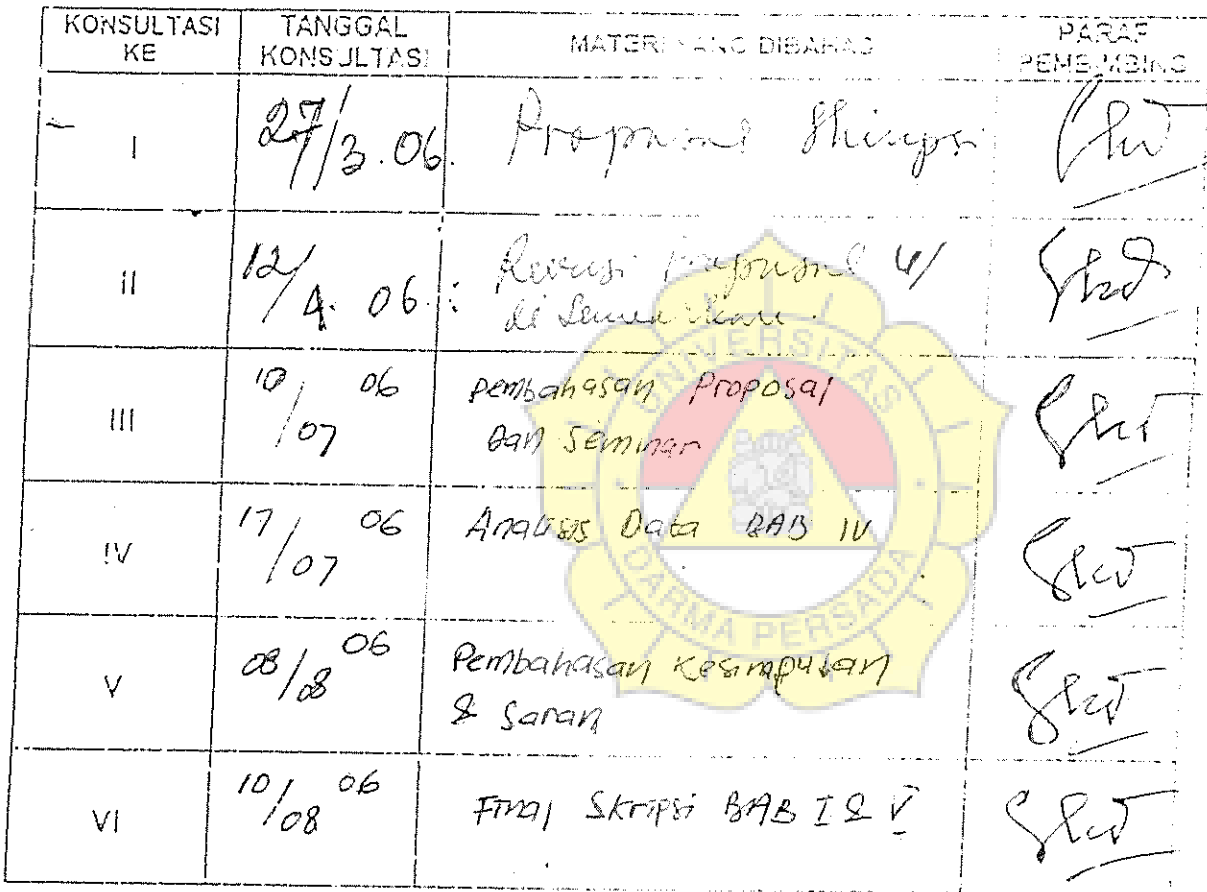 KONSULTASI KE
TANGGAL KONSULTASI
MATERI YANG DIBAHAS
PARAF PEMBIMBING
I
27/3.06.
Proposal Skripsi
II
12/4.06.
Revisi Proposal u/
di Seminarkan.
III
10/07 06
Pembahasan Proposal
dan Seminar
IV
17/07 06
Analisis Data BAB IV
V
08/8 06
Pembahasan Kesimpulan
& Saran
VI
10/08 06
Final Skripsi BAB I & V
UNIVERSITAS
DARMA PERSADA